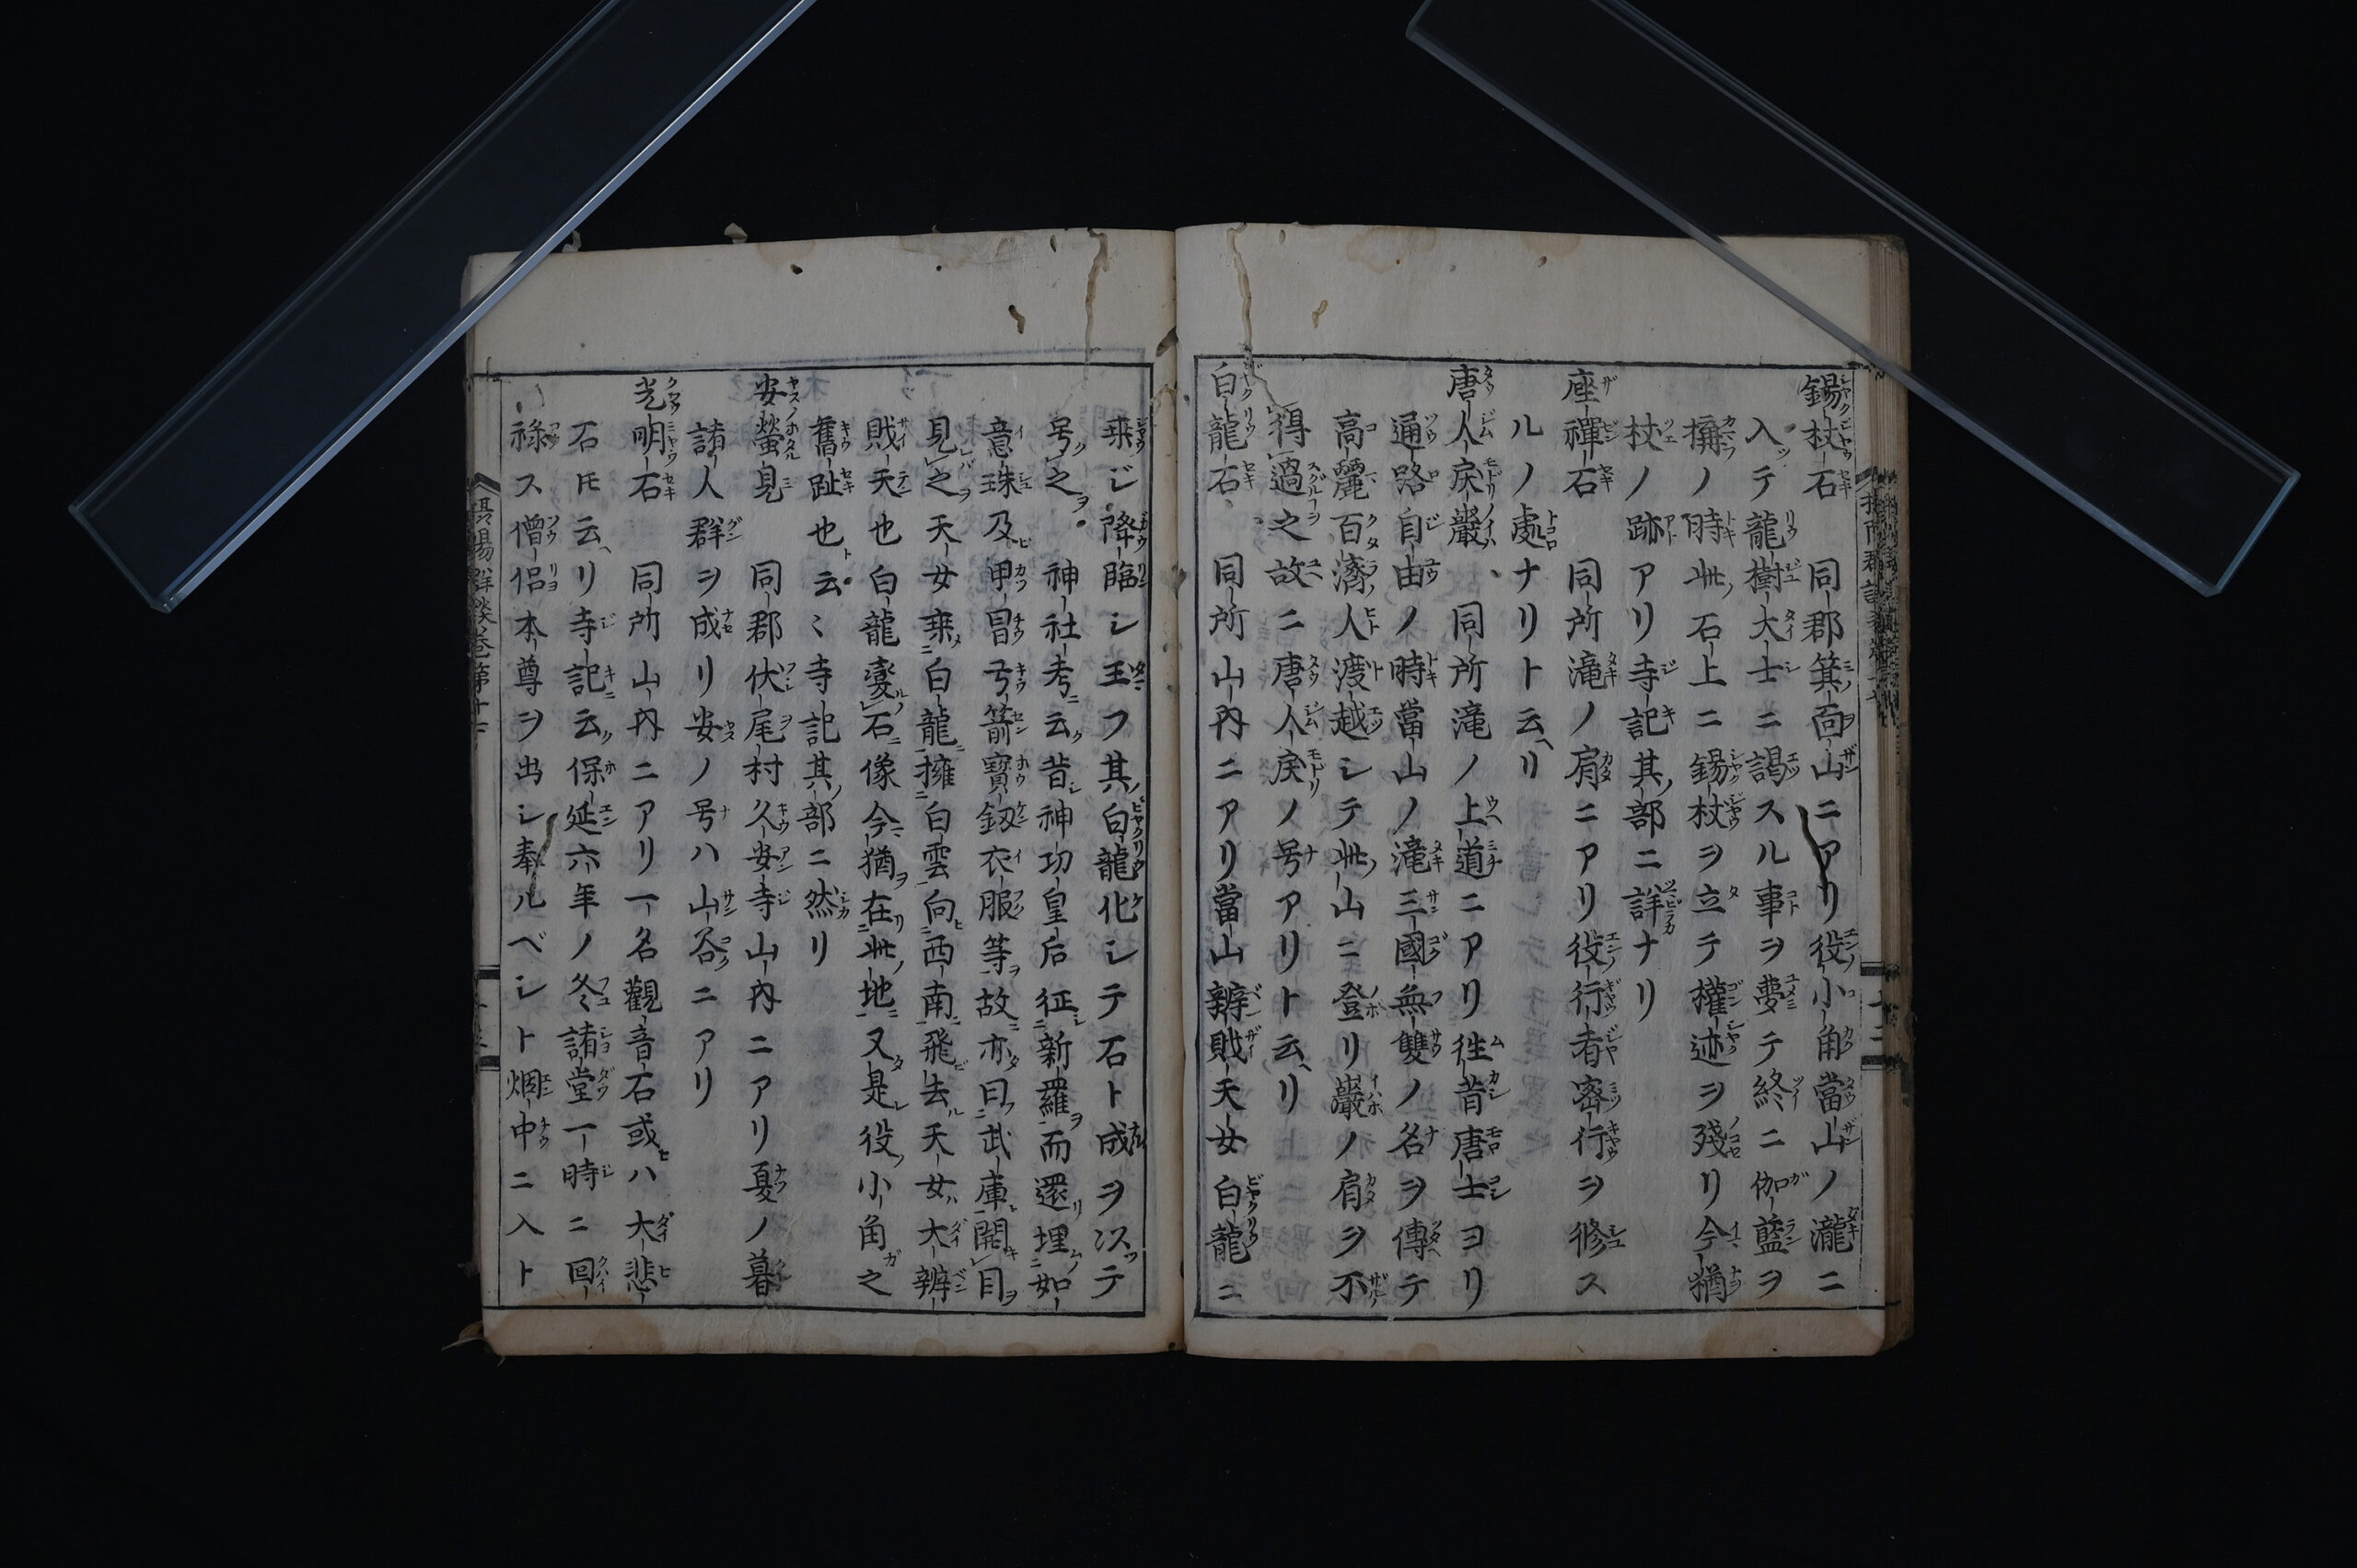 錫杖石 同郡箕面山ニアリ役小角當山ノ瀧ニ
入テ龍樹大士ニ謁スル事ヲ夢テ終ニ伽藍ヲ
搆ノ時此石上ニ錫杖ヲ立テ權迹ヲ殘リ今猶
杖ノ跡アリ寺記其部ニ詳ナリ
座禪石 同所滝ノ肩ニアリ役行者密行ヲ修ス
ルノ處ナリト云リ
唐人戻巖 同所滝ノ上道ニアリ徃昔唐士ヨリ
通路自由ノ時當山ノ滝三國無雙ノ名ヲ傳テ
高麗百濟人渡越シテ此山ニ登リ巖ノ肩ヲ不
得過之故ニ唐人戻ノ号アリト云リ
白龍石 同所山内ニアリ當山辨戝天女白龍ニ
乗ジ降臨シ玉フ其白龍化シテ石ト成ヲ以テ
号之 神社考云昔神功皇后征新羅而還埋如
意珠及甲冒弓箭寶釼衣服等故亦曰武庫開目
見之天女乗白龍擁白雲向西南飛去天女大辨
戝天也白龍變石像今猶在此地又是役小角之
舊趾也云〻寺記其部ニ然リ
安螢見 同郡伏尾村久安寺山内ニアリ夏ノ暮
諸人群ヲ成リ安ノ号ハ山谷ニアリ
光明石 同所山内ニアリ一名觀音石或ハ大悲
石氏云リ寺記云保延六年ノ冬諸堂一時ニ回
祿ス僧侶本尊ヲ出シ奉ルベシト烟中ニ入ト
摂陽群談巻第十